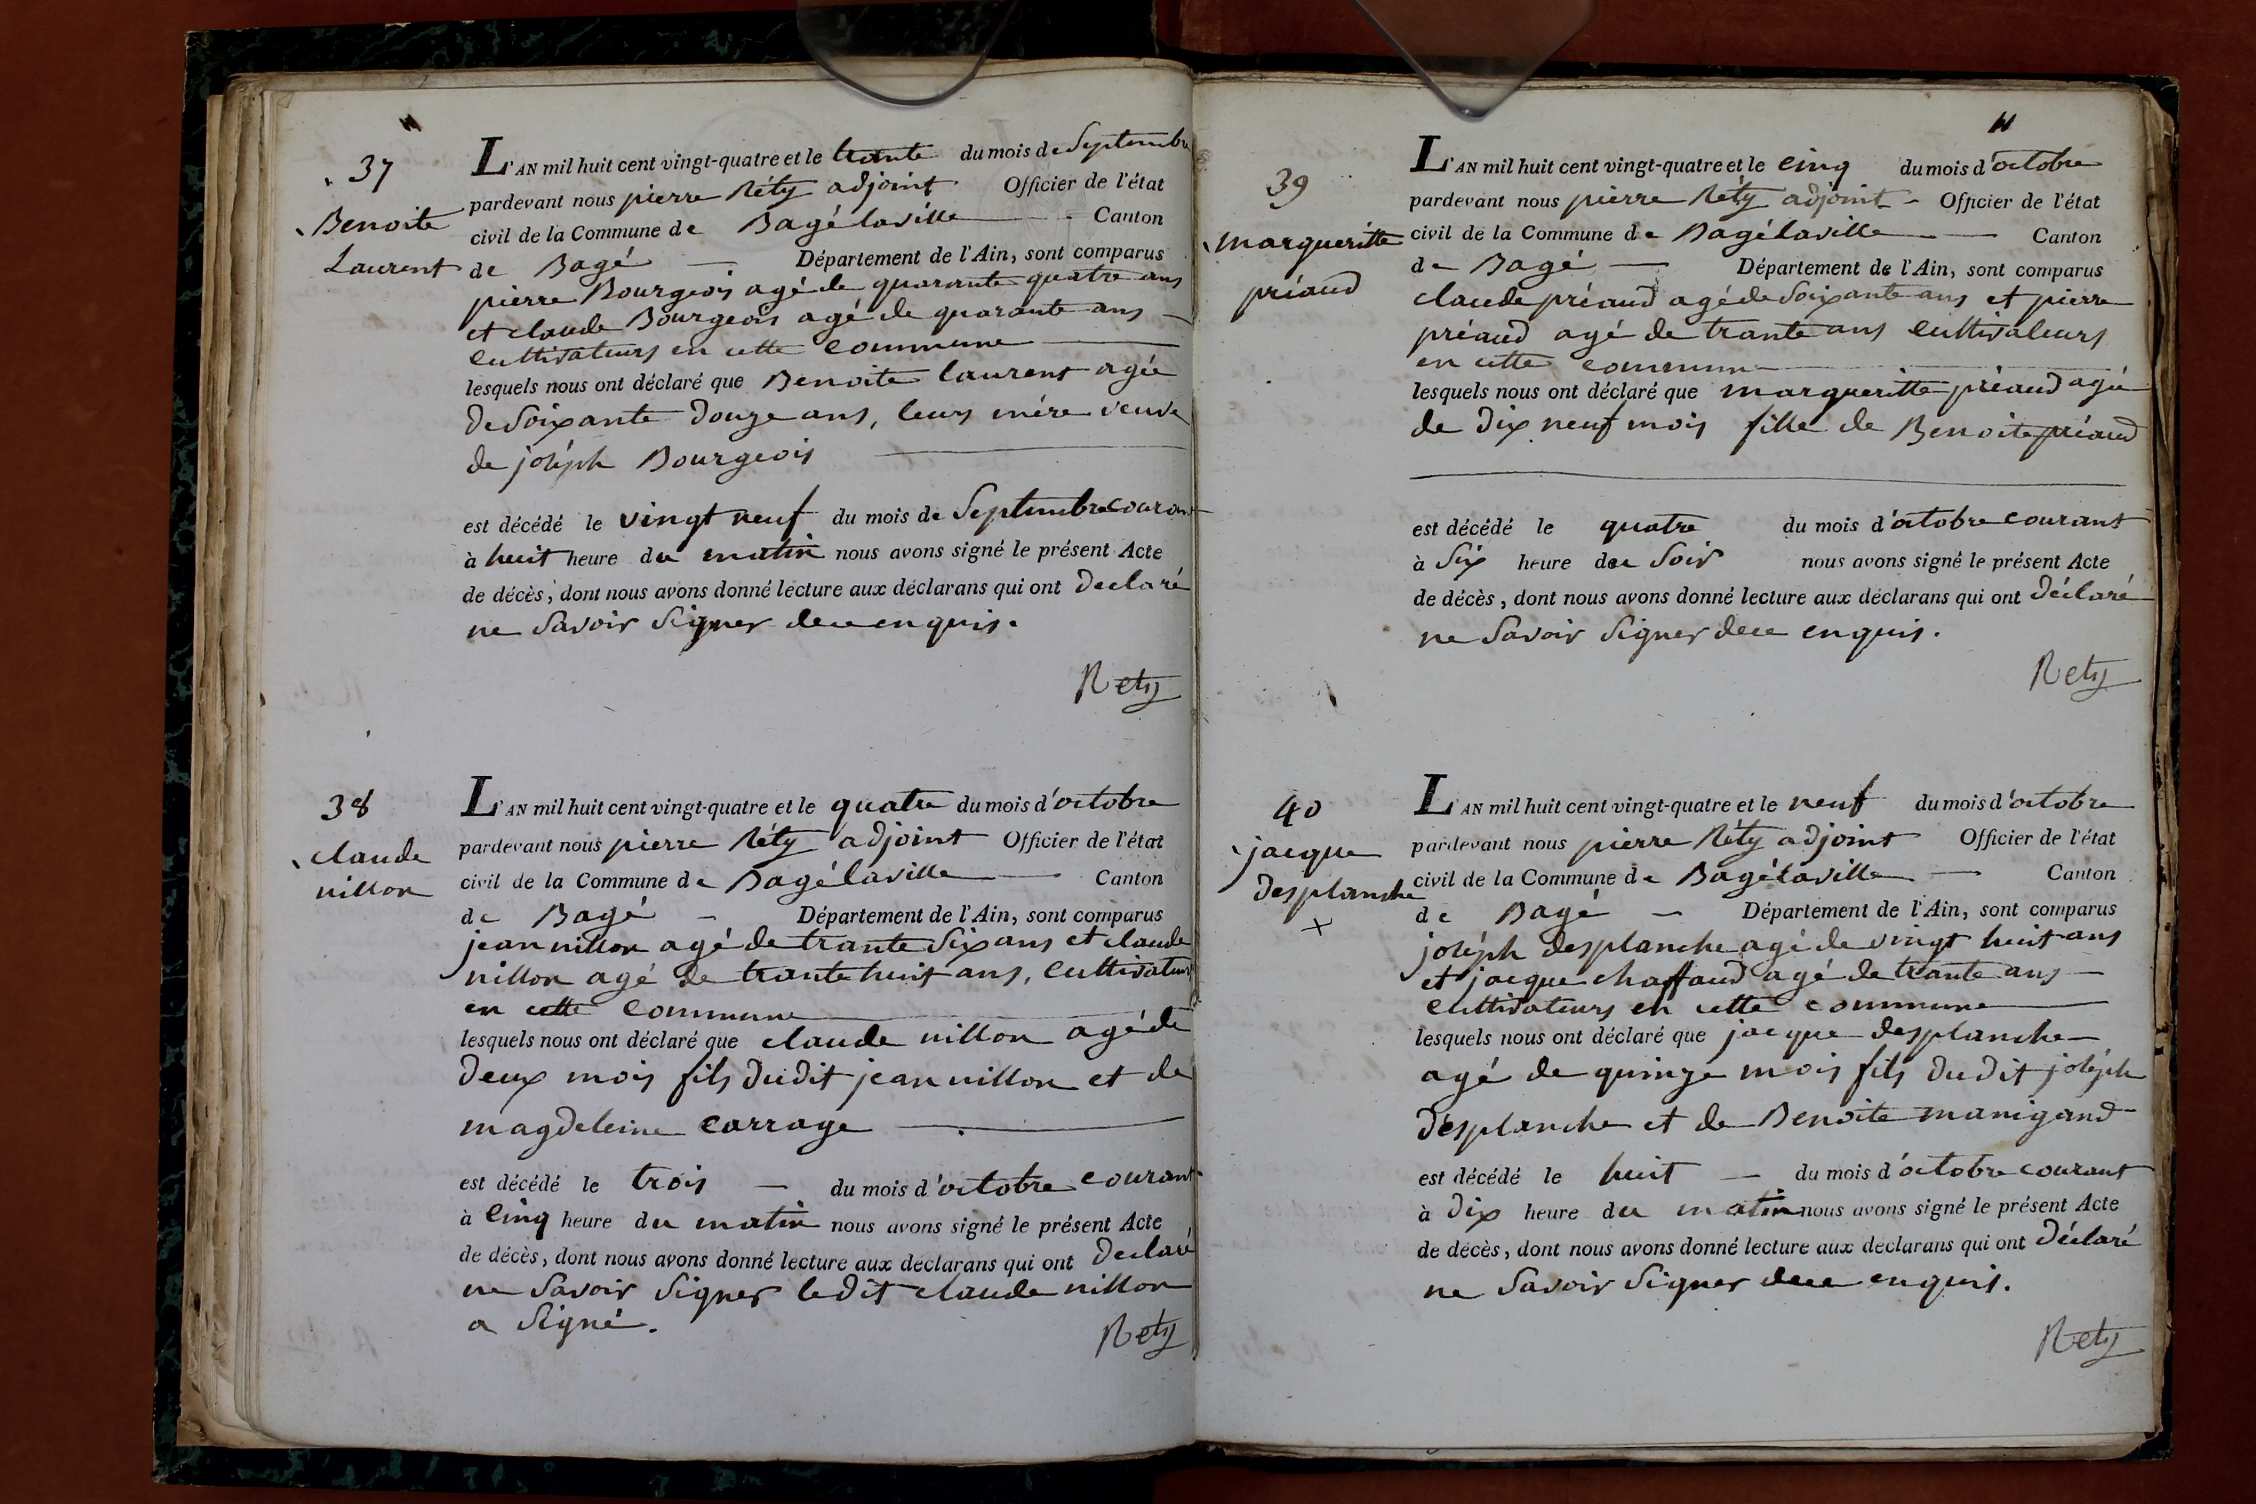 37
Benoite
Laurent
L'AN mil huit cent vingt-quatre et le trante du mois de Septembre
pardevant nous pierre Réty adjoint Officier de l'état
civil de la Commune de Bagélaville Canton
de Bagé Département de l'Ain, sont comparus
pierre Bourgeois agé de quarante quatre ans
et claude Bourgeois agé de quarante ans
cultivateurs en cette commune
lesquels nous ont déclaré que Benoite laurent agée
de Soixante douze ans, leurs mére veuve
de joséph Bourgeois
est décédé le vingt neuf du mois de Septembre courant
à huit heure du matin nous avons signé le présent Acte
de décès, dont nous avons donné lecture aux déclarans qui ont declaré
ne Savoir Signer de ce enquis.
Rety
38
claude
nillon
L'AN mil huit cent vingt-quatre et le quatre du mois d'octobre
pardevant nous pierre Réty adjoint Officier de l'état
civil de la Commune de Bagélaville Canton
de Bagé Département de l'Ain, sont comparus
jean nillon agé de trante Six ans et claude
nillon agé de trante huit ans, cultivateurs
en cette commune
lesquels nous ont déclaré que claude nillon agé de
deux mois fils dudit jean nillon et de
magdeleine carrage
est décédé le trois du mois d'octobre courant
à cinq heure du matin nous avons signé le présent Acte
de décès, dont nous avons donné lecture aux déclarans qui ont declaré
ne Savoir Signer ledit claude nillon
a Signé.
Rety
39
margueritte
préaud
L'AN mil huit cent vingt-quatre et le cinq du mois d'octobre
pardevant nous pierre Réty adjoint Officier de l'état
civil de la Commune de Bagélaville Canton
de Bagé Département de l'Ain, sont comparus
claude préaud agé de Soixante ans et pierre
préaud agé de trante ans cultivateurs
en cette commune
lesquels nous ont déclaré que margueritte préaud agée
de dix neuf mois fille de Benoite préaud
est décédé le quatre du mois d'octobre courant
à Six heure du Soir nous avons signé le présent Acte
de décès, dont nous avons donné lecture aux déclarans qui ont déclaré
ne Savoir Signer de ce enquis.
Rety
40
jacque
desplanche
L'AN mil huit cent vingt-quatre et le neuf du mois d'octobre
pardevant nous pierre Réty adjoint Officier de l'état
civil de la Commune de Bagélaville Canton
de Bagé Département de l'Ain, sont comparus
joséph desplanche agé de vingt huit ans
et jacque chaffaud agé de trante ans
cultivateurs en cette commune
lesquels nous ont déclaré que jacque desplanche
agé de quinze mois fils dudit joséph
desplanche et de Benoite manigand
est décédé le huit du mois d'octobre courant
à dix heure du matin nous avons signé le présent Acte
de décès, dont nous avons donné lecture aux déclarans qui ont déclaré
ne Savoir Signer de ce enquis.
Rety